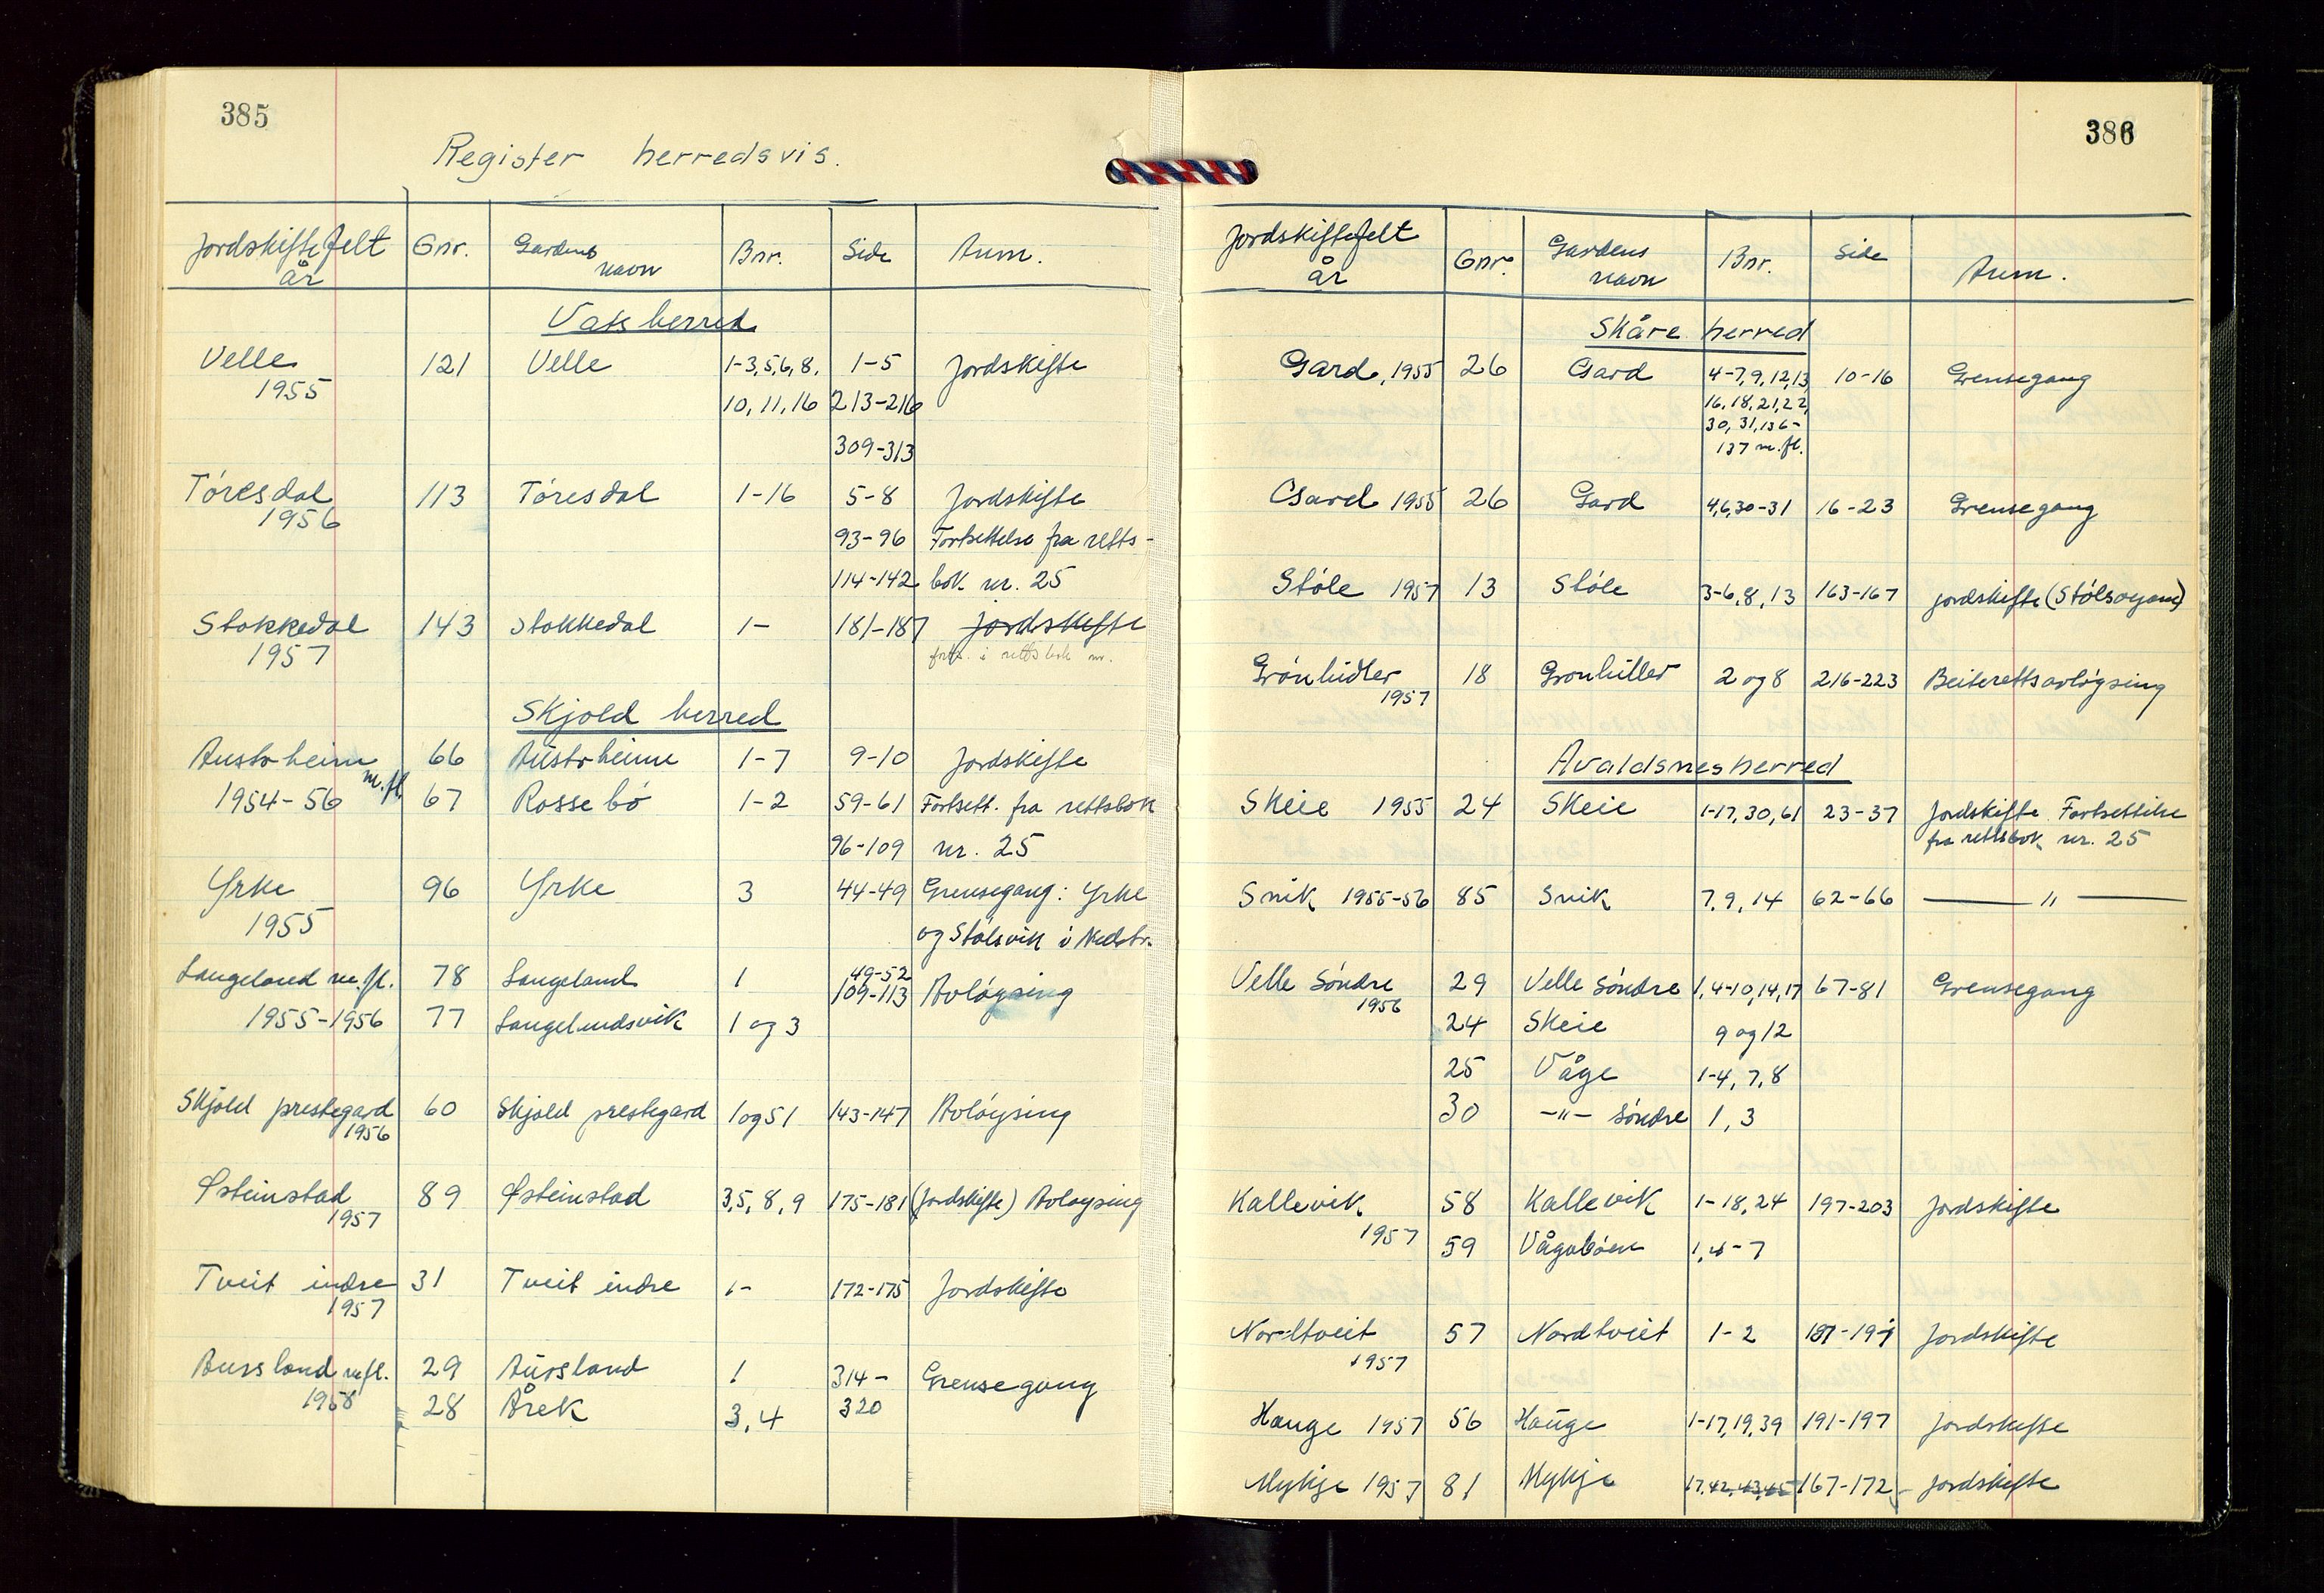 385
Register herredsvis.
Jordskiftefelt år Gnr. Gardens navn Bnr. Side Anm.
Vats herred
Velle 121 Velle 1-3,5,6,8, 1-5 Jordskifte
1955 10, 11, 16 213-216
309-313
Tóresdal 113 Tóresdal 1-16 5-8 Jordskifte
1956 93-96 Fortsettelse fra retts-
114-142 bok nr. 25
Stokkedal 143 Stokkedal 1- 181-187 Jordskifte
1957 forts. i rettsbok nr.
Skjold herred
Austrheim m.fl. 66 Austrheim 1-7 9-10 Jordskifte
1954-56 67 Rossebó 1-2 59-61 Fortsett. fra rettsbok
96-109 nr. 25
Yrke 96 Yrke 3 44-49 Grensegang: Yrke
1955 og Stólsvik i Nedstr.
Langeland m.fl. 78 Langeland 1 49-52
109-113 Avlóysing
1955-1956 77 Langelandsvik 1 og 3
Skjold prestegard 60 Skjold prestegard 1 og 51 143-147 Avlóysing
1956
Østeinstad 89 Østeinstad 3,5, 8, 9 175-181 (Jordskifte) Avloysing
1957
Tveit indre 31 Tveit indre 1- 172-175 Jordskifte
1957
Aursland m.fl. 29 Aursland 1 314- Grensegang
1958 28 Årek 3, 4 320
386
Jordskiftefelt år Gnr. Gardens navn Bnr. Side Anm.
Skåre herred
Gard, 1955 26 Gard 4-7, 9, 12, 13 10-16 Grensegang
16, 18, 21, 22,
30, 31, 136-
137 m.fl.
Gard 1955 26 Gard 4,6,30-31 16-23 Grensegang
Stóle 1957 13 Stóle 3-6, 8, 13 163-167 jordskifte (Stólsoyane)
Grónhidler 18 Gronhiller 2 og 8 216-223 Beiterettsavlóysing
1957
Avaldsnes herred
Skeie 1955 24 Skeie 1-17, 30, 61 23-37 Jordskifte Fortsettelse
fra rettsbok nr. 25
Snik 1955-56 85 Snik 7, 9, 14 62-66 — " —
Velle Sóndre 29 Velle Sóndre 1, 4-10, 14, 17 67-81 Grensegang
1956
24 Skeie 9 og 12
25 Våge 1-4, 7, 8
30 -"- Sóndre 1, 3
Kallevik 58 Kallevik 1-18, 24 197-203 Jordskifte
1957 59 Vågabóen 1, 4-7
Nordtveit 57 Nordtveit 1-2 187-191 Jordskifte
1957
Hauge 1957 56 Hauge 1-17, 19, 39 191-197 Jordskifte
Mykje 1957 81 Mykje 17, 42, 43, 45 167-172 Jordskifte